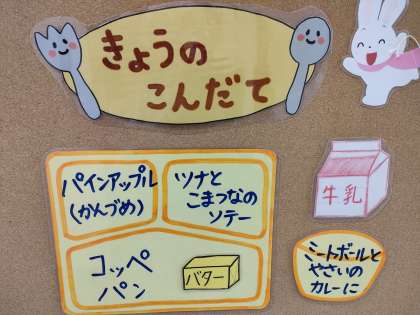 きょうの
こんだて
パインアップル
(かんづめ)
ツナと
こまつなの
ソテー
コッペ
パン
バター
牛乳
ミートボールと
やさいの
カレーに